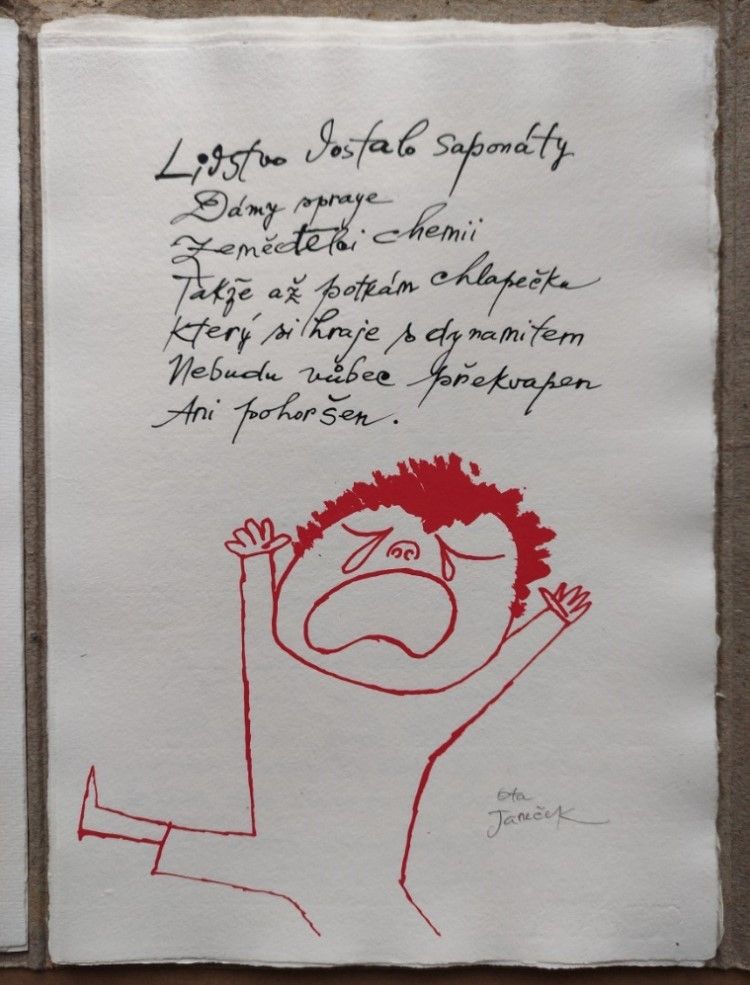 Lidstvo dostalo saponáty
Dámy spraye
Zemědělci chemii
Takže až potkám chlapečka
Který si hraje s dynamitem
Nebudu vůbec překvapen
Ani pohoršen.
Ota
Janeček